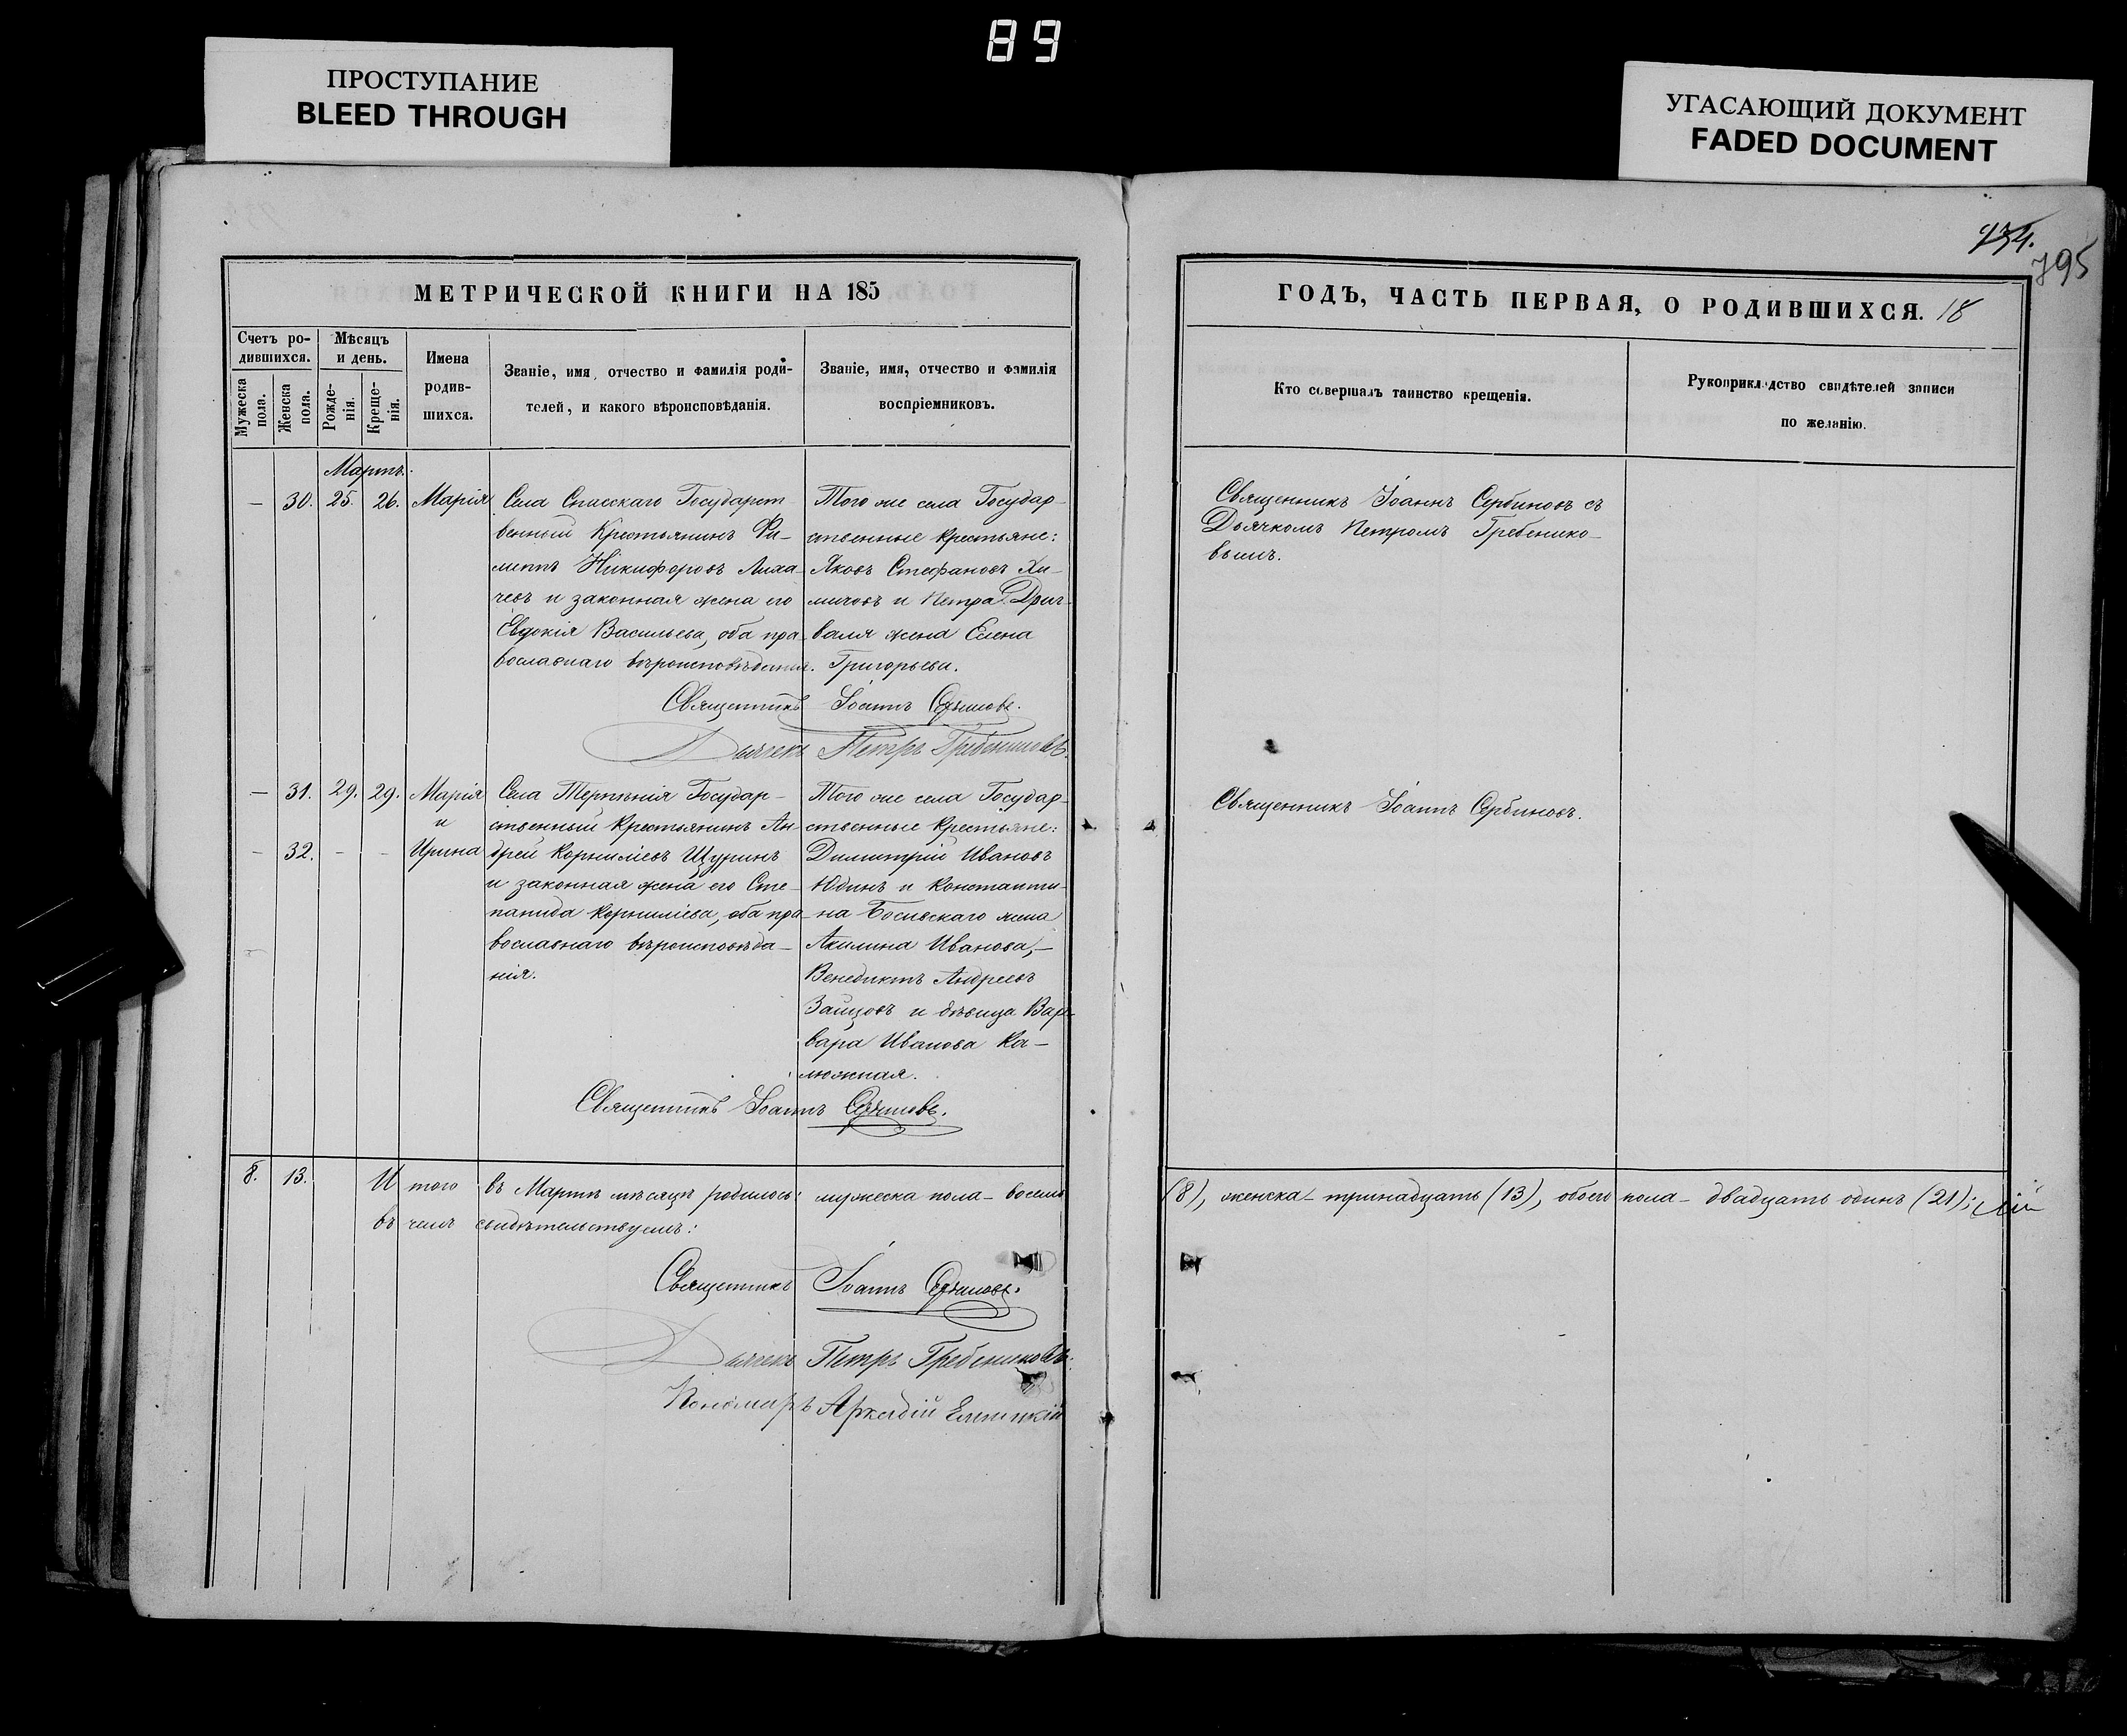 89
ПРОСТУПАНИЕ
BLEED THROUGH
УГАСАЮЩИЙ ДОКУМЕНТ
FADED DOCUMENT
934.
795
МЕТРИЧЕСКОЙ КНИГИ НА 185
Счетъ ро-
дившихся.
Мужеска
пола.
Женска
пола.
Мѣсяцъ
и день.
Рожде-
нія.
Креще-
нія.
Имена
родив-
шихся.
Званіе, имя, отчество и фамилія роди-
телей, и какого вѣроисповѣданія.
Званіе, имя, отчество и фамилія
воспріемниковъ.
Мартъ.
— 30. 25. 26. Марія
Села Спасскаго Государст-
венный Крестьянинъ Фи-
липпъ Никифоровъ Лиха-
чевъ и законная жена его
Евдокія Васильева, оба пра-
вославнаго вѣроисповѣданія.
Того же села Государ-
ственные крестьяне:
Яковъ Стефановъ Хи-
мичовъ и Петра Дриг-
валя жена Елена
Григорьева.
Священникъ Іоаннъ Сербиновъ.
Дьячекъ Петръ Гребениковъ.
— 31. 29. 29. Марія
и
— 32. - - Ирина
Села Терпѣнія Государ-
ственный Крестьянинъ Ан-
дрей Корниліевъ Щуринъ
и законная жена его Сте-
панида Корниліева, оба пра-
вославнаго вѣроисповѣда-
нія.
Того же села Государ-
ственные Крестьяне:
Димитрій Ивановъ
Юдинъ и Константи-
на жена
Акилина Иванова,—
Венедиктъ Андреевъ
Зайцовъ и дѣвица Вар-
вара Иванова Ка-
люжная.
Священникъ Іоаннъ Сербиновъ.
8. 13. И того въ Мартѣ мѣсяцѣ родилось: мужеска пола - восемь
въ чемъ свидѣтельствуемъ:
Священникъ Іоаннъ Сербиновъ.
Дьячекъ Петръ Гребениковъ.
Пономарь Аркадій
ГОДЪ, ЧАСТЬ ПЕРВАЯ, О РОДИВШИХСЯ. 18
Кто совершалъ таинство крещенія.
Рукоприкладство свидѣтелей записи
по желанію.
Священникъ Іоаннъ Сербиновъ съ
Дьячкомъ Петромъ Гребенико-
вымъ.
Священникъ Іоаннъ Сербиновъ.
(8), женска - тринадцать (13), обоего пола - двадцать одинъ (21);